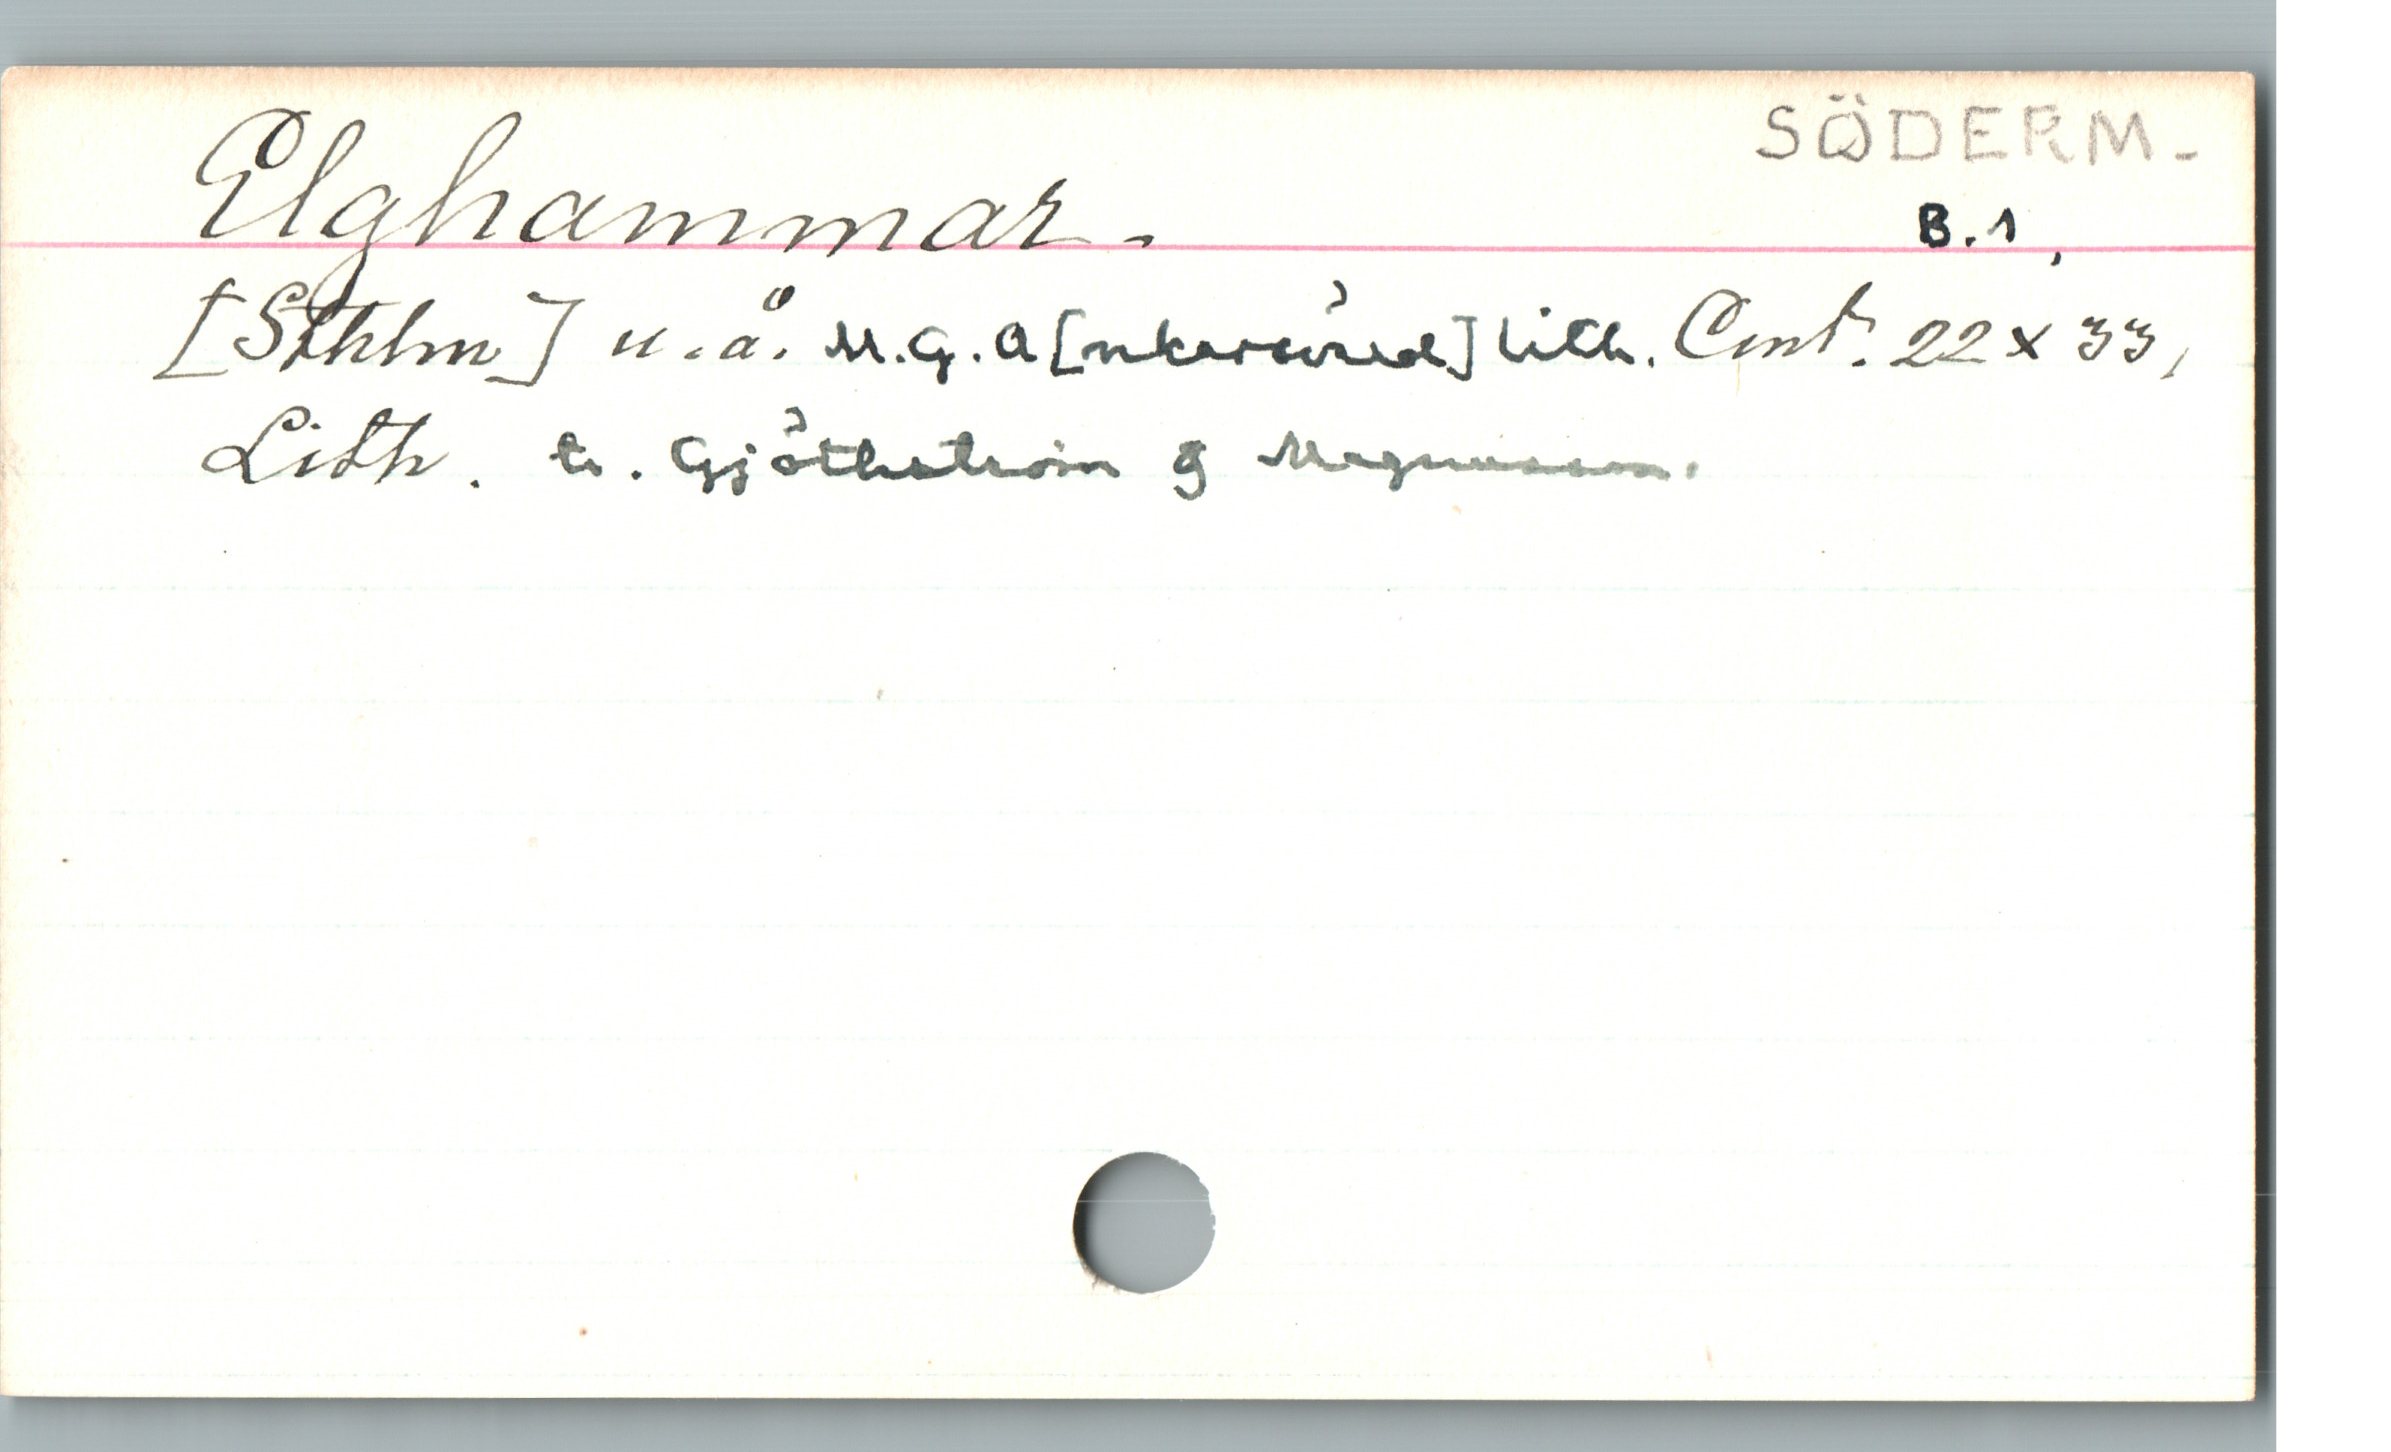 SÖDERM-
Elghammar.
B.1
[Sthlm] u.å. M.G.A[nkarsvärd] lith. Cmt. 22 x 33,
Lith. tr. Gjöthström & Magnusson.